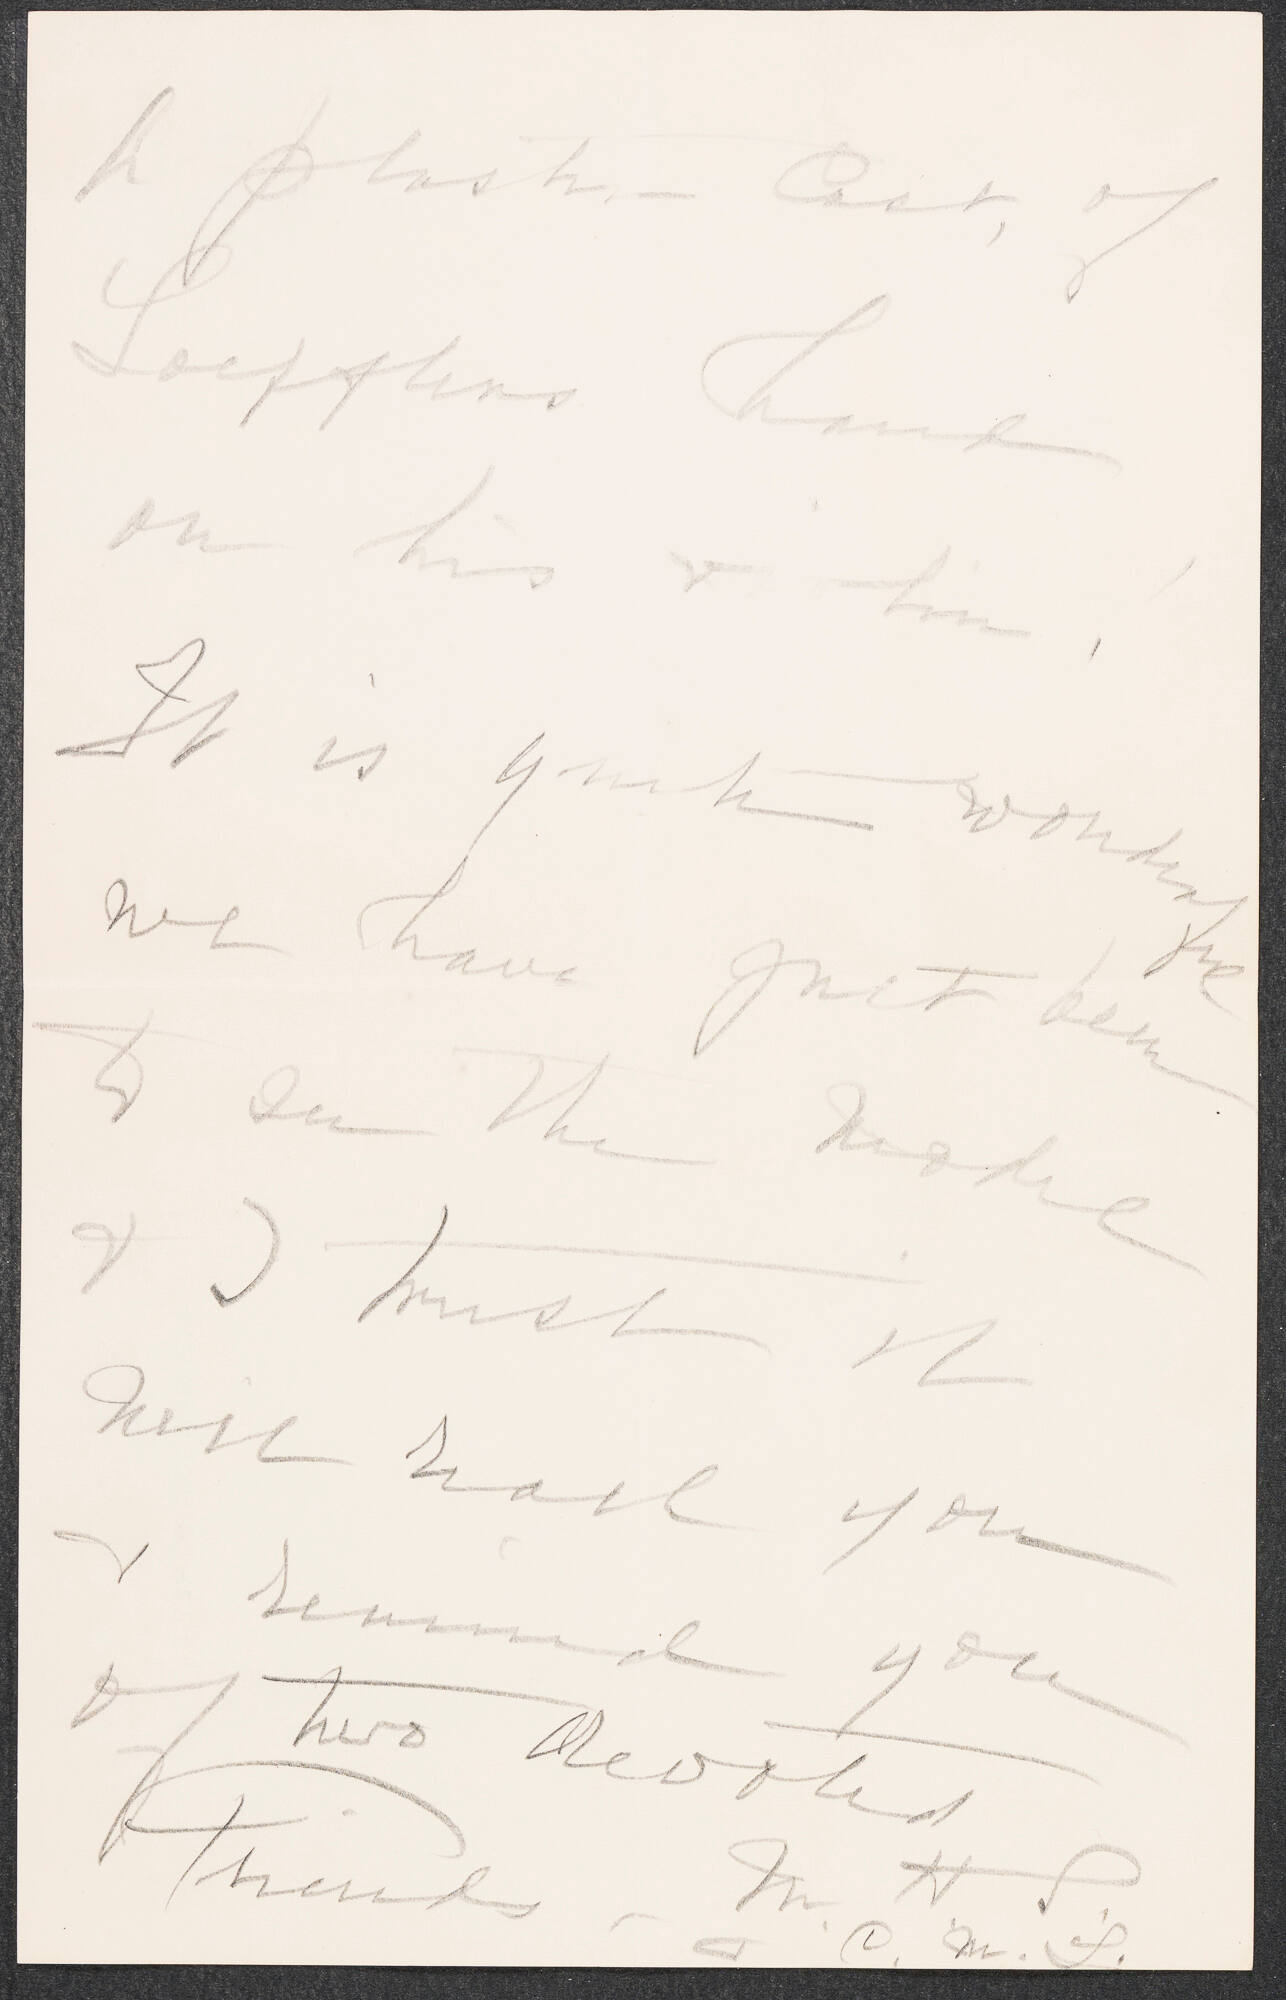 a plaster cast, of
Loefflers hand
on his violin!
It is quite wonderful
we have just been
to see the model
& I trust it
will reach you
& remind you
of two devoted
Friends — M. H. S.
& C. M. L.